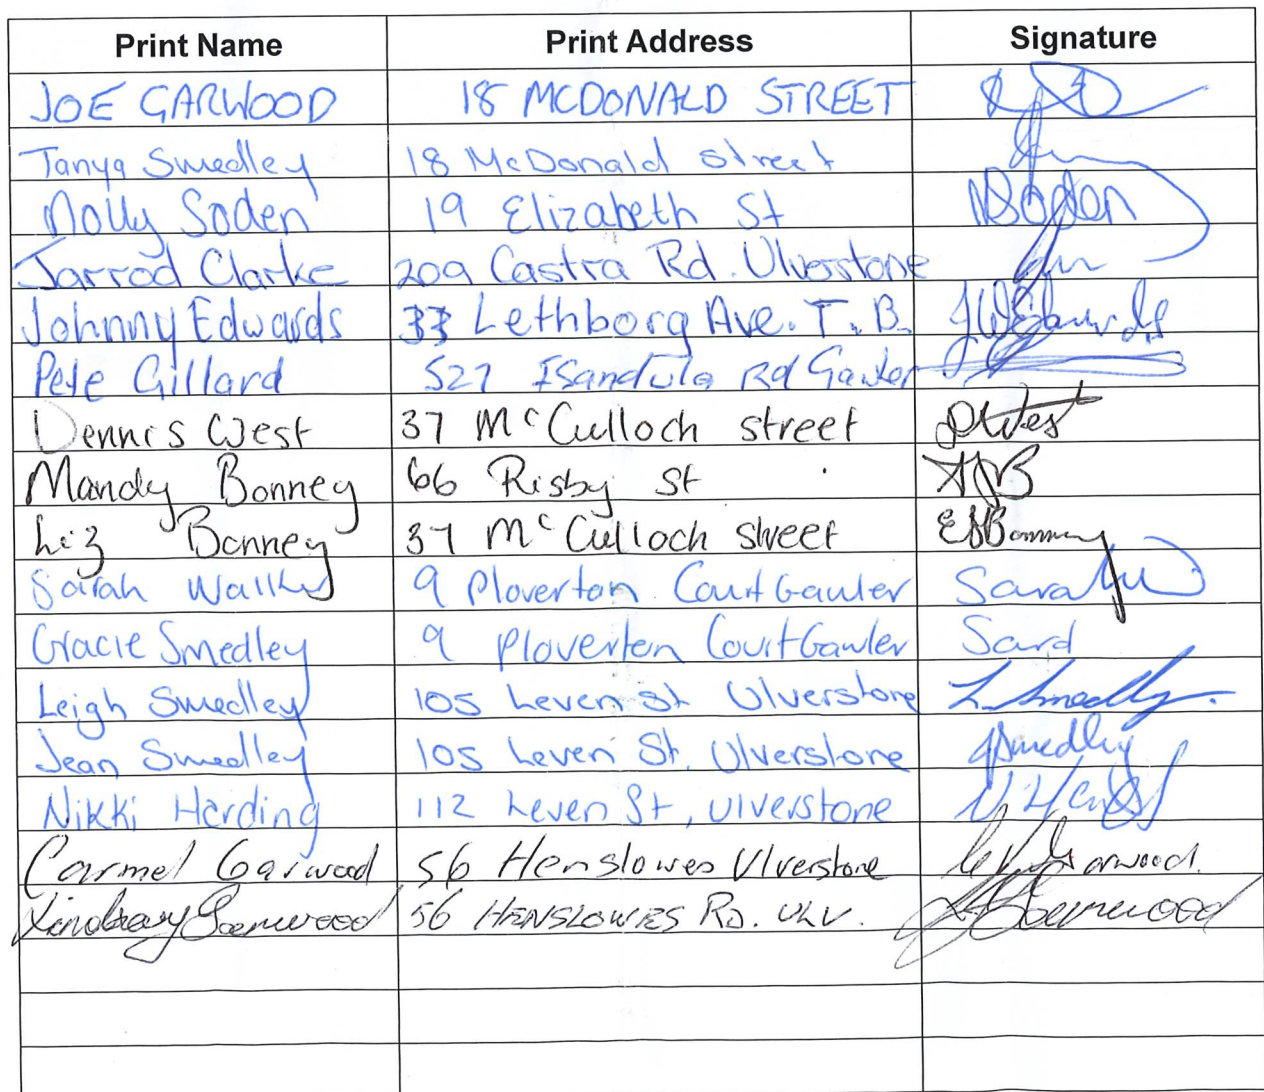 Print Name Print Address Signature
JOE GARWOOD 18 MCDONALD STREET
Tanya Smedley 18 McDonald street
Molly Soden 19 Elizabeth St MSoden
Jarrod Clarke 209 Castra Rd. Ulverstone
Johnny Edwards 33 Lethborg Ave. T. B. JWEdwards
Pete Gillard 527 Isandula Rd Gawler
Dennis West 37 McCulloch street DWest
Mandy Bonney 66 Risby St
Liz Bonney 37 McCulloch street EJBonney
Sarah Walker 9 Ploverton Court Gawler
Gracie Smedley 9 Ploverton Court Gawler
Leigh Smedley 105 Leven St Ulverstone L. Smedley.
Jean Smedley 105 Leven St, Ulverstone JSmedley
Nikki Harding 112 Leven St, Ulverstone
Carmel Garwood 56 Henslowes Ulverstone Garwood.
Lindsay Garwood 56 HENSLOWES RD. ULV. Garwood